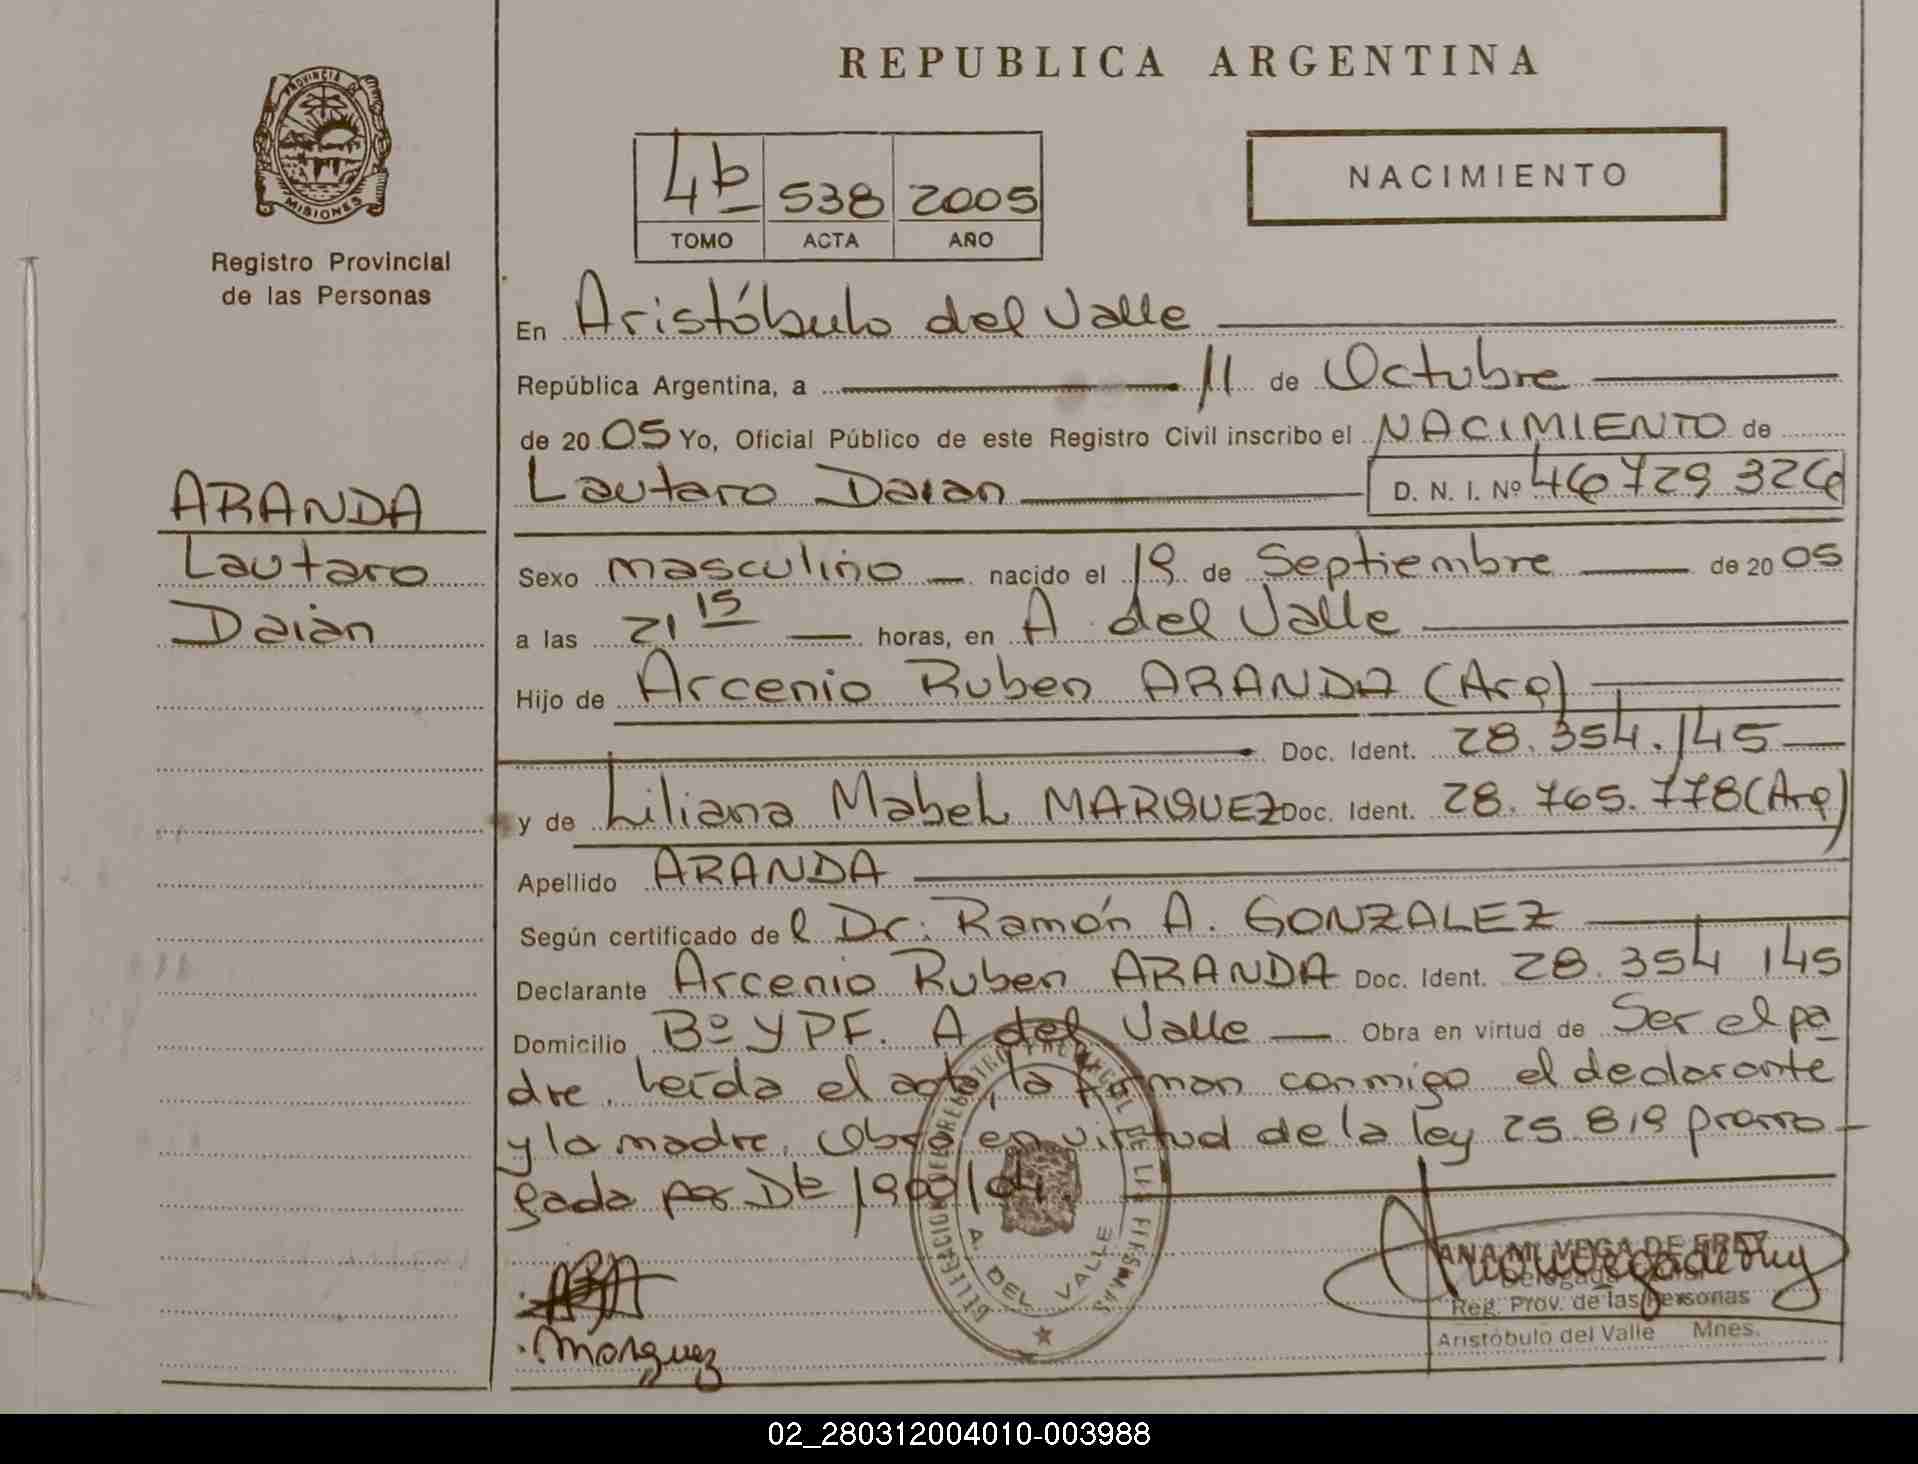 PROVINCIA DE
MISIONES
Registro Provincial
de las Personas
ARANDA
Lautaro
Daián
REPUBLICA ARGENTINA
4b 538 2005
TOMO ACTA AÑO
NACIMIENTO
En Aristóbulo del Valle
República Argentina, a 11 de Octubre
de 20 05 Yo, Oficial Público de este Registro Civil inscribo el NACIMIENTO de
Lautaro Daian D. N. I. Nº 46 729 326
Sexo masculino nacido el 19 de Septiembre de 20 05
a las 21 15 horas, en A. del Valle
Hijo de Arcenio Ruben ARANDA (Arg)
Doc. Ident. 28.354.145
y de Liliana Mabel MARQUEZ Doc. Ident. 28.765.778 (Arg)
Apellido ARANDA
Según certificado de l Dr. Ramón A. GONZALEZ
Declarante Arcenio Ruben ARANDA Doc. Ident. 28.354 145
Domicilio Bº YPF. A del Valle Obra en virtud de Ser el pa
dre. Leída el acta, la firman conmigo el declarante
y la madre. Obra en virtud de la ley 25.819 prorro-
gada por Dto 1900/04.
DELEGACION DEL REGISTRO PROVINCIAL DE LAS PERSONAS
A. DEL VALLE
Marquez
ANA M. VEGA DE FREY
Reg. Prov. de las Personas
Aristóbulo del Valle Mnes.
02_280312004010-003988